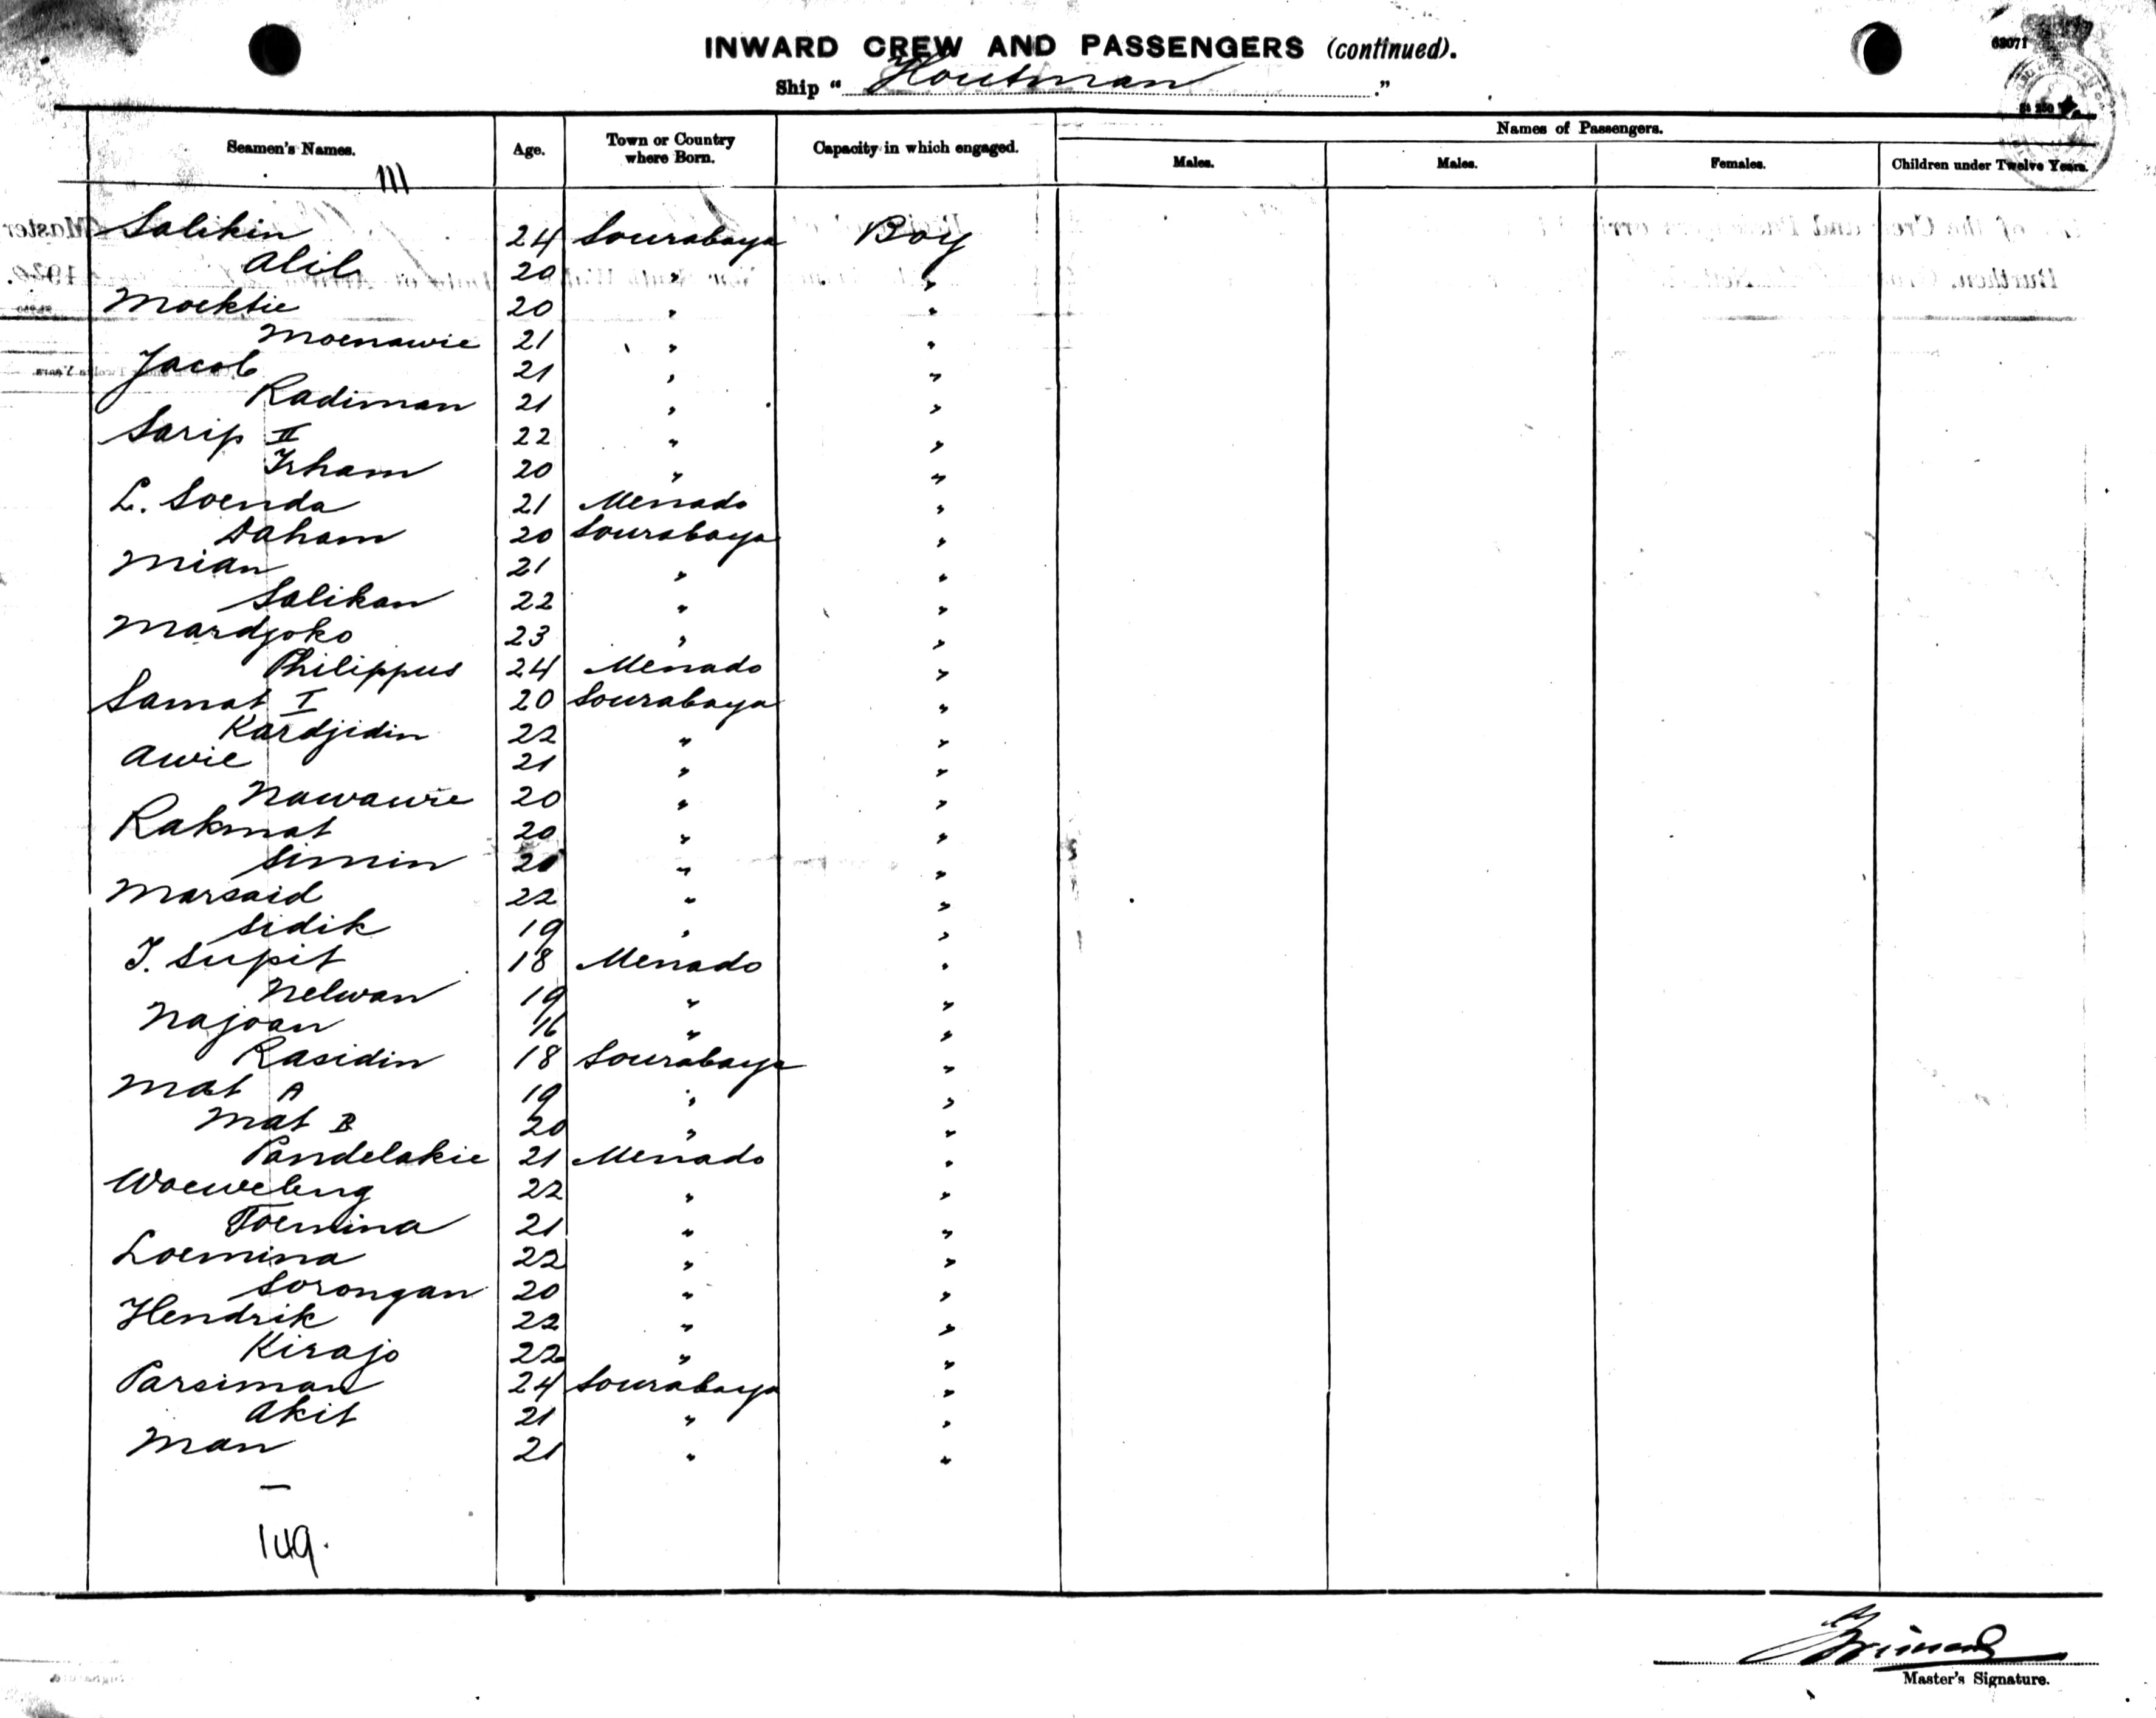 63071
INWARD CREW AND PASSENGERS (continued).
Ship “ Houtman ”
Seamen's Names. Age. Town or Country where Born. Capacity in which engaged. Names of Passengers.
Males. Males. Females. Children under Twelve Years.
111
Salikin 24 Sourabaya Boy
Alib 20 " "
Moektie 20 " "
Moenawie 21 " "
Jacob 21 " "
Radiman 21 " "
Sarip II 22 " "
Irham 20 " "
L. Soenda 21 Menado "
Daham 20 Sourabaya "
Mian 21 " "
Salikan 22 " "
Mardjoko 23 " "
Philippus 24 Menado "
Samat I 20 Sourabaya "
Kardjidin 22 " "
Awie 21 " "
Nawawie 20 " "
Rakmat 20 " "
Simin 20 " "
Marsaid 22 " "
Sidik 19 " "
J. Supit 18 Menado "
Nelwan 19 " "
Najoan 16 " "
Rasidin 18 Sourabaya "
Mat A 19 " "
Mat B 20 " "
Pandelakie 21 Menado "
Woeweleng 22 " "
Toemina 21 " "
Loemina 22 " "
Sorongan 20 " "
Hendrik 22 " "
Kirajo 22 " "
Parsiman 24 Sourabaya "
Akit 21 " "
Man 21 " "
—
149.
Master's Signature.